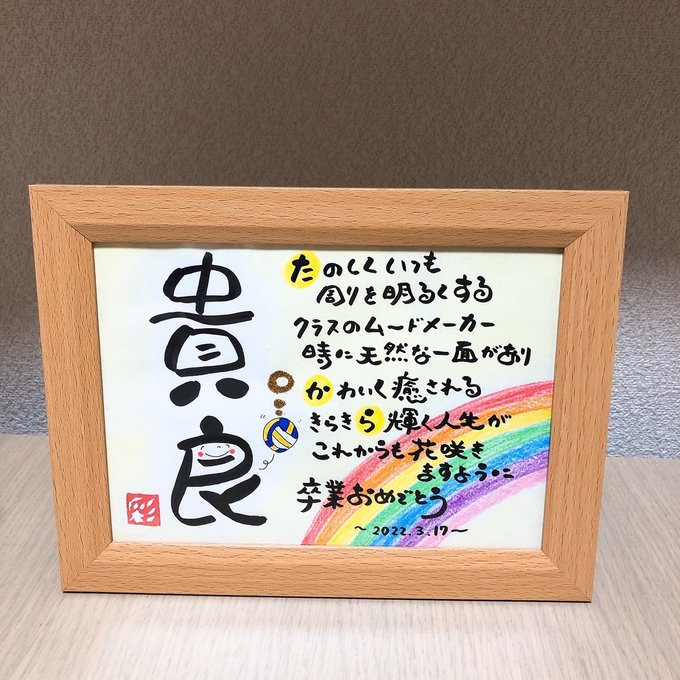 貴良
たのしくいつも
周りを明るくする
クラスのムードメーカー
時に天然な一面があり
かわいく癒される
きらきら輝く人生が
これからも花咲き
ますように
卒業おめでとう
～2022.3.17～